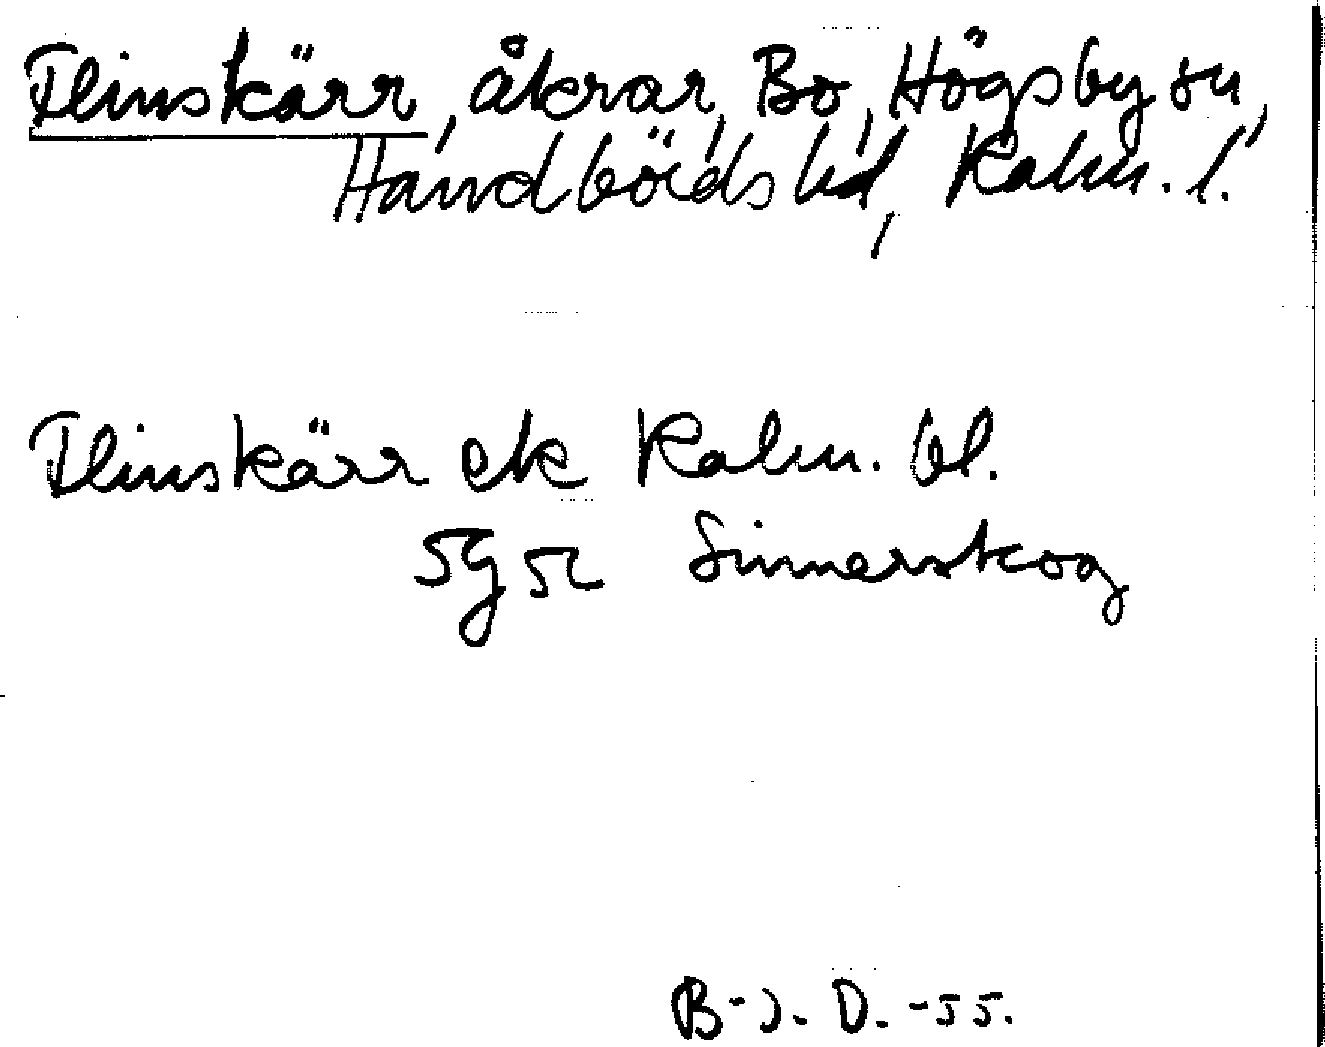 Flinskärr, åkrar, Bo, Högsby sn,
Handbörds hd, Kalm. l.
Flinskärr ek Kalm. bl.
5g 52 Sinnerskog
B-J. D. -55.